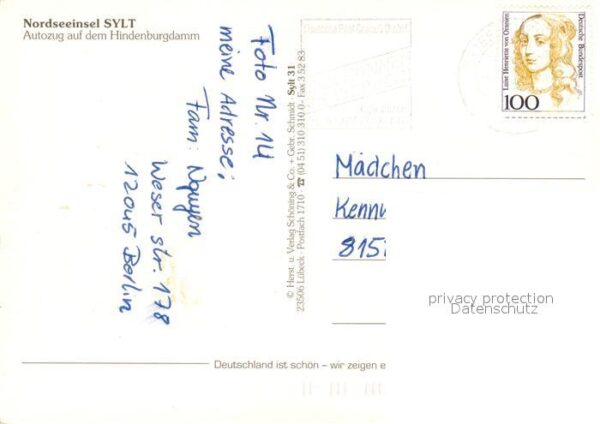 Nordseeinsel SYLT
Autozug auf dem Hindenburgdamm
Foto Nr. 14
meine Adresse;
Fam: Nguyen
Weser str. 178
12045 Berlin
© Herst. u. Verlag Schöning & Co. + Gebr. Schmidt · Sylt 31
23506 Lübeck · Postfach 1710 · ☎ (04 51) 310 310 0 · Fax 3 52 83
Luise Henriette von Oranien
Deutsche Bundespost
100
Mädchen
Kennw
8151
privacy protection
Datenschutz
Deutschland ist schön – wir zeigen e